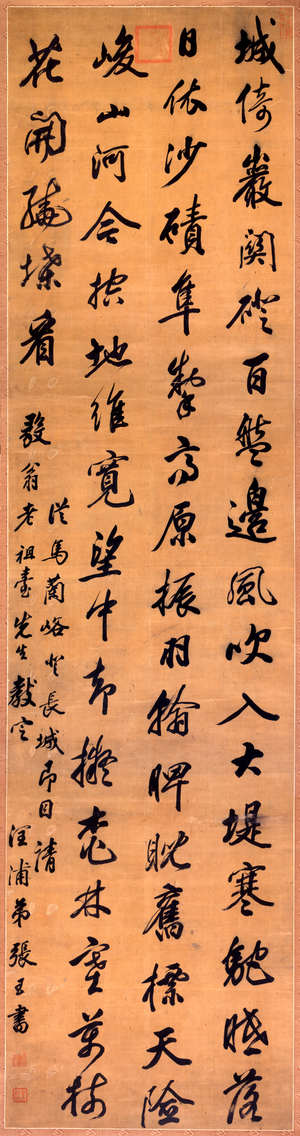 城倚巖關磴百盤邊風吹入大堤寒駝嘶落
日依沙磧隼擊高原振羽翰睥睨舊標天險
峻山河合控地維寬望中却擬
林塞萬樹
花開繞堞看
從馬蘭峪登長城即目請
翁老祖臺先生教定
浦弟張玉書